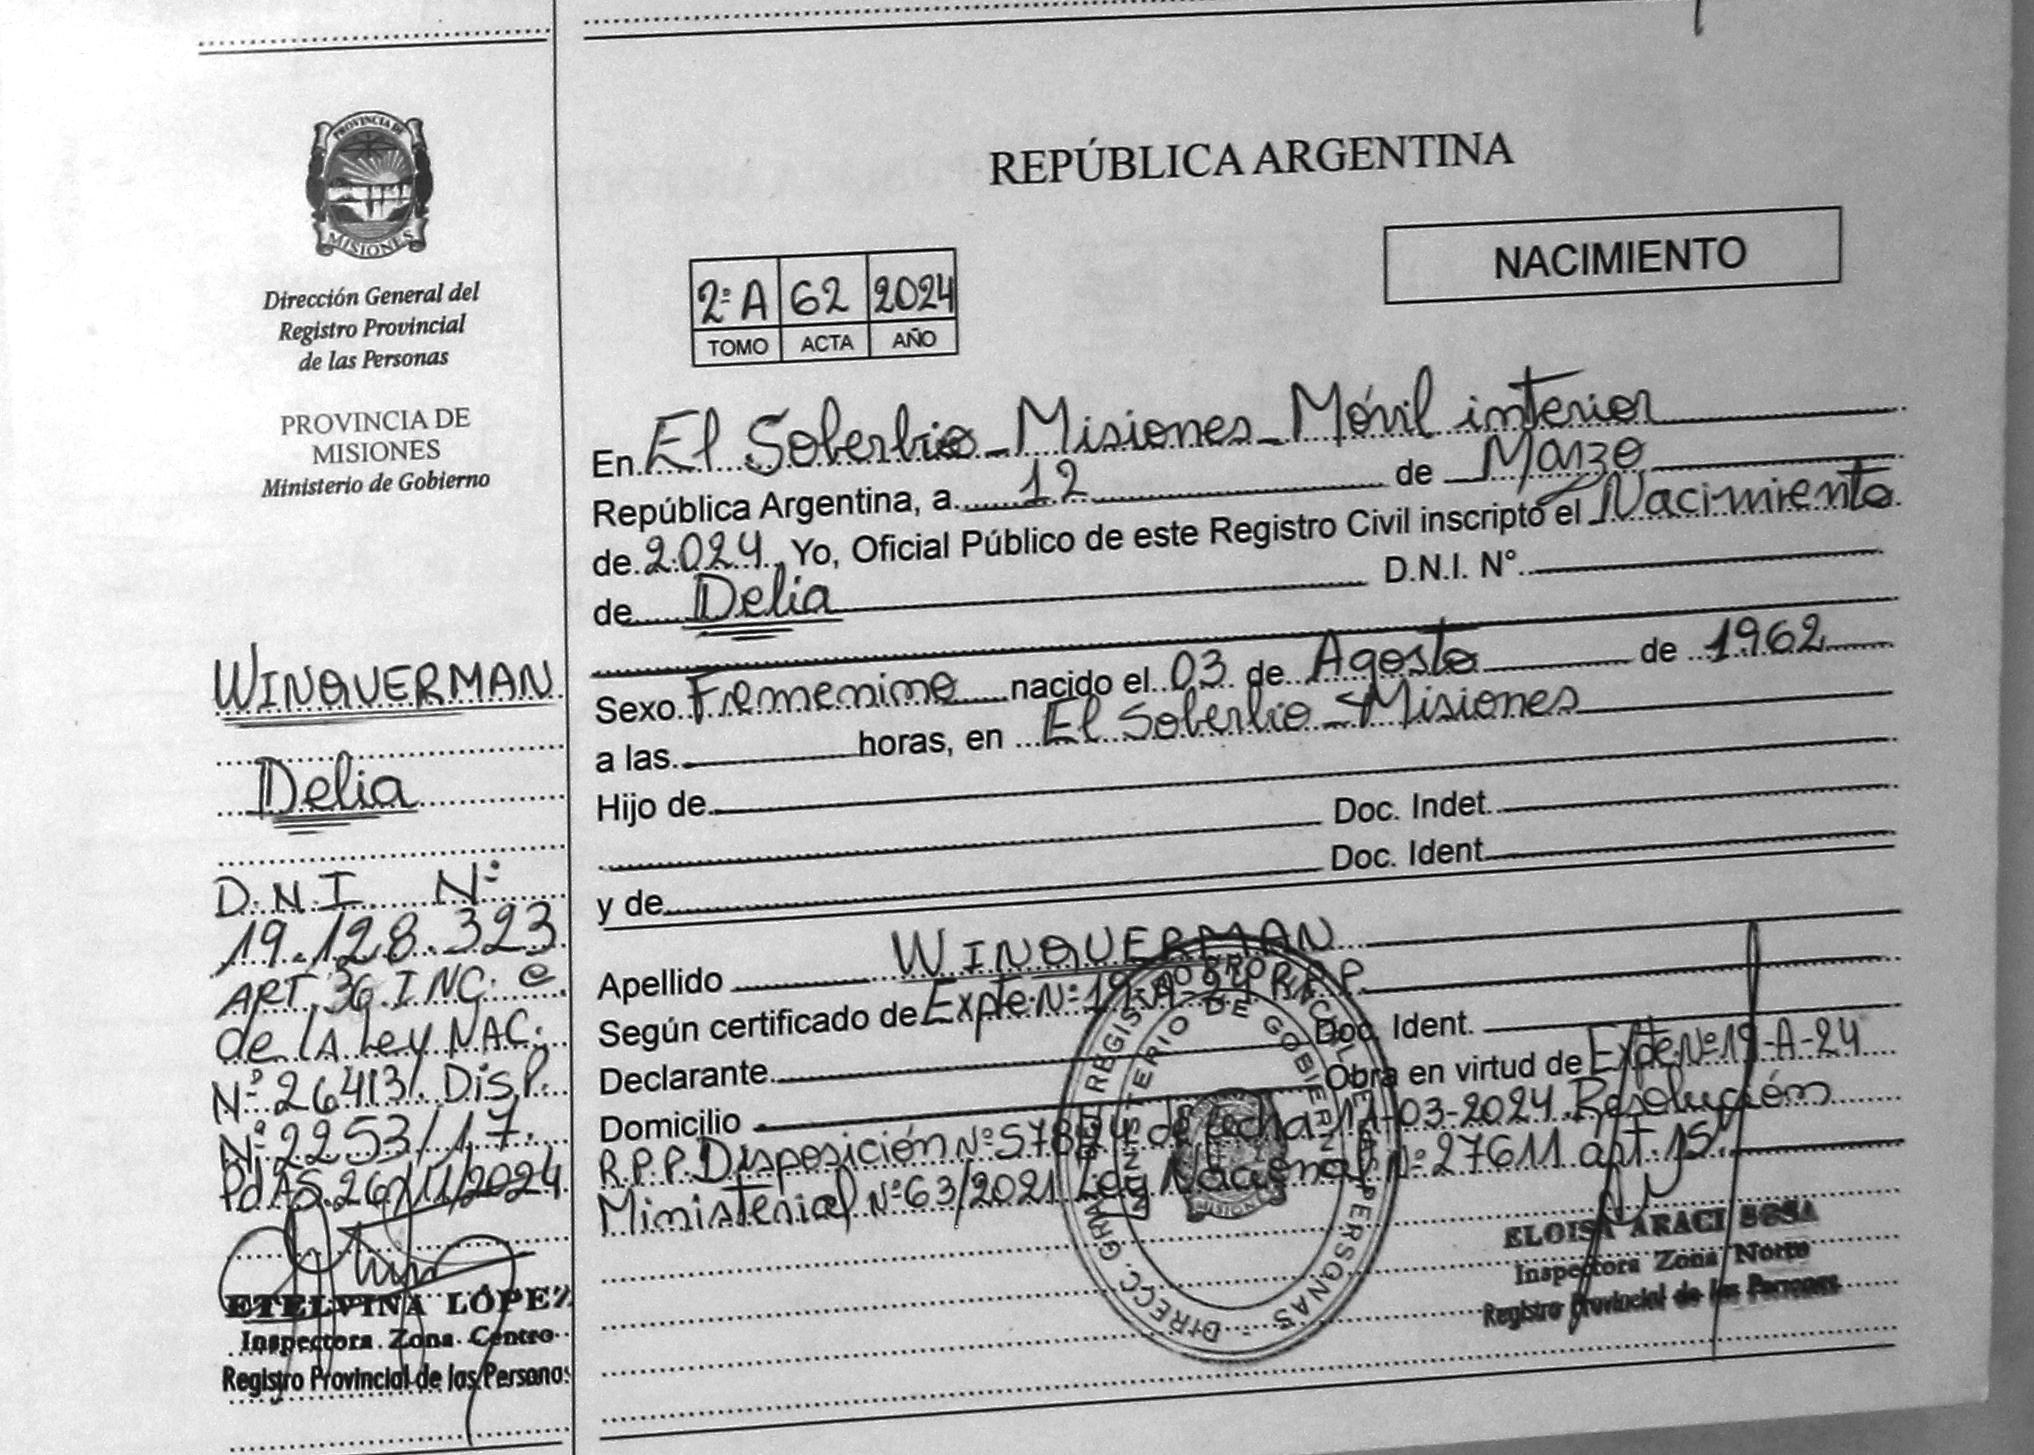 PROVINCIA DE
MISIONES
Dirección General del
Registro Provincial
de las Personas
PROVINCIA DE
MISIONES
Ministerio de Gobierno
WINQUERMAN
Delia
D.N.I Nº
19.128.323
ART. 36 INC. e
de lA Ley NAC.
Nº 26413. DisP.
Nº 2253/17.
PdAS. 26/11/2024
ETELVINA LÓPEZ
Inspectora Zona Centro
Registro Provincial de las Personas
REPÚBLICA ARGENTINA
NACIMIENTO
2º A 62 2024
TOMO ACTA AÑO
En El Soberbio_Misiones_Móvil interior
República Argentina, a 12 de Marzo
de 2024 Yo, Oficial Público de este Registro Civil inscripto el Nacimiento
de Delia D.N.I. N°
Sexo Femenino nacido el 03 de Agosto de 1962
a las horas, en El Soberbio_Misiones
Hijo de Doc. Indet.
Doc. Ident
y de
Apellido WINQUERMAN
Según certificado de Expte Nº 19-A-24 R.P.P.
Doc. Ident.
Declarante Obra en virtud de Expte Nº 19-A-24
Domicilio
R.P.P. Disposición Nº 578/24 de fecha 11-03-2024 Resolución
Ministerial Nº 63/2021 Ley Nacional Nº 27611 art. 15.
DIRECC. GRAL. DEL REGISTRO PROVINCIAL DE LAS PERSONAS
MINISTERIO DE GOBIERNO
MISIONES
ELOISA ARACI SOSA
Inspectora Zona Norte
Registro Provincial de las Personas